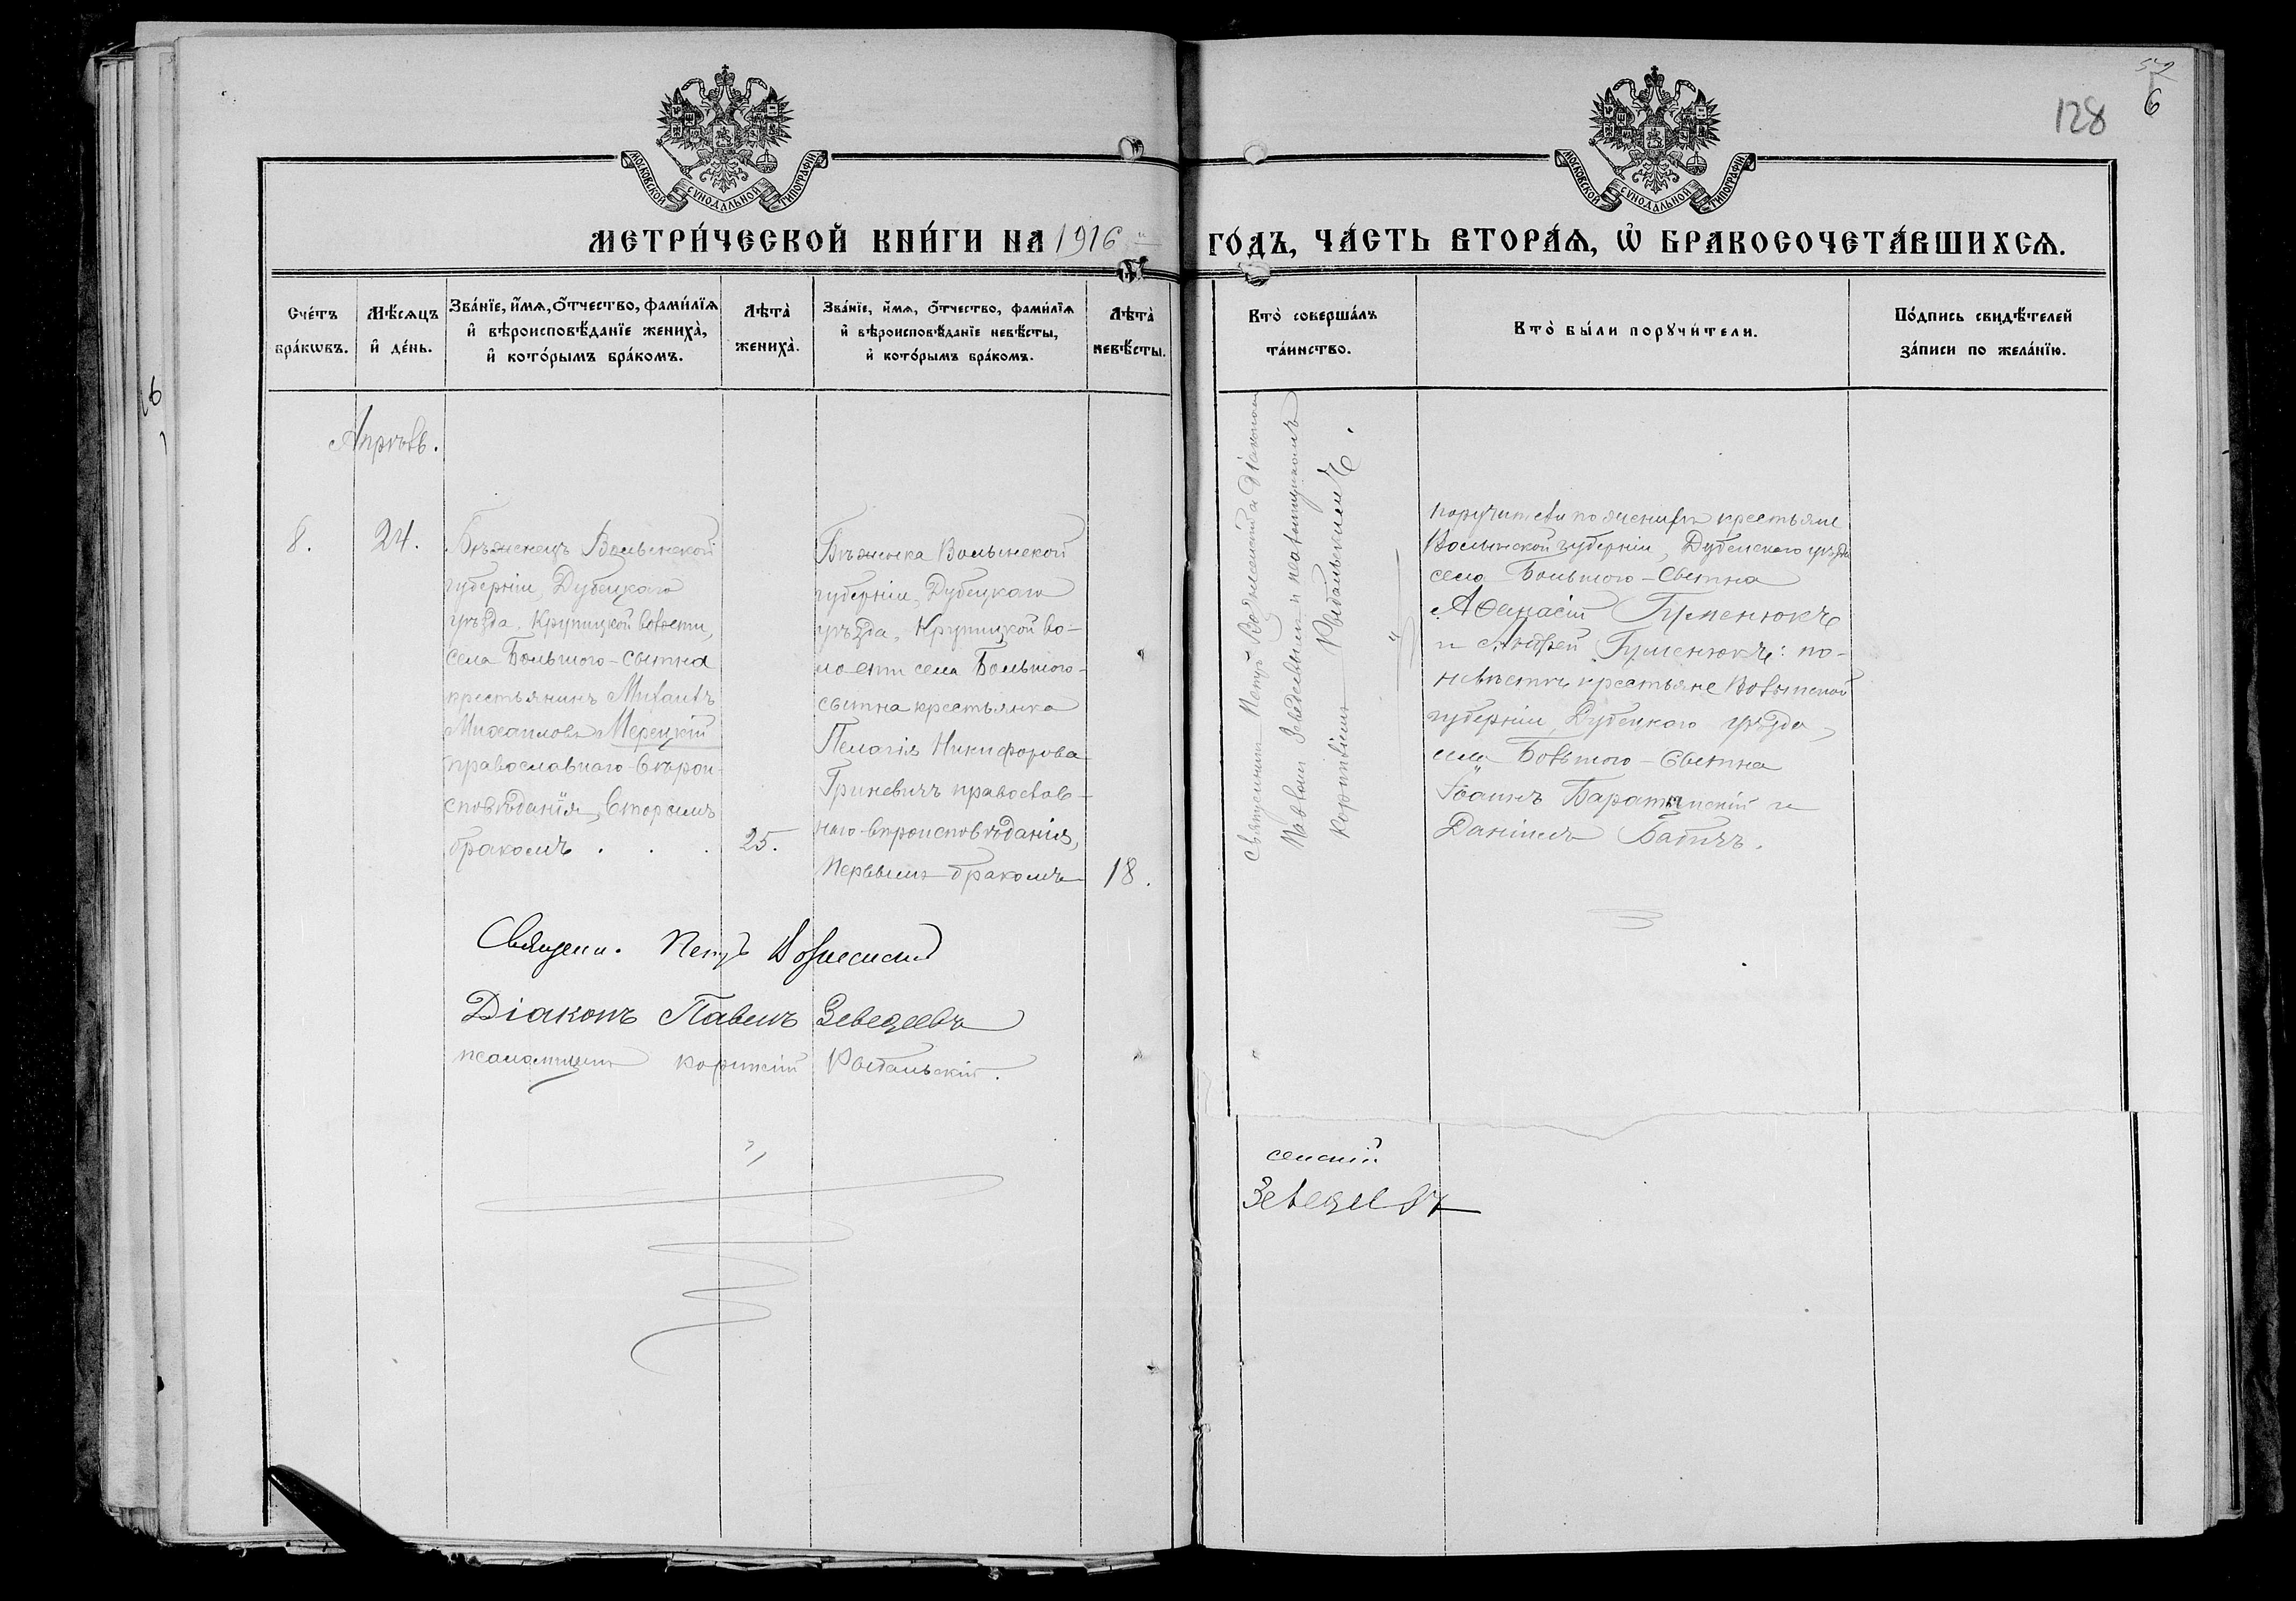 52
6
128
МОСКОВСКОЙ СѴНОДАЛЬНОЙ ТИПОГРАФІИ
МОСКОВСКОЙ СѴНОДАЛЬНОЙ ТИПОГРАФІИ
МЕТРИ́ЧЕСКОЙ КНИ́ГИ НА 1916 ГО́ДЪ, ЧА́СТЬ ВТОРА́Ѧ, Ѽ БРАКОСОЧЕТА́ВШИХСѦ.
Сче́тъ
бра́кѡвъ.
Мѣ́сѧцъ
и҆ де́нь.
Зва́нїе, и҆́мѧ, ѻ҆́тчество, фами́лїѧ
и҆ вѣроисповѣ́данїе жениха̀,
и҆ кото́рымъ бра́комъ.
Лѣта̀
жениха̀.
Зва́нїе, и҆́мѧ, ѻ҆́тчество, фами́лїѧ
и҆ вѣроисповѣ́данїе невѣ́сты,
и҆ кото́рымъ бра́комъ.
Лѣта̀
невѣ́сты.
Кто̀ соверша́лъ
та́инство.
Кто̀ бы́ли порꙋчи́тели.
По́дпись свидѣ́телей
за́писи по жела́нїю.
Апрѣль.
8.
24.
Бѣженецъ Волынской
губерніи, Дубецкаго
уѣзда, Крупицкой волости,
села Большого-Свѣтна
крестьянинъ Михаилъ
Михаиловъ Мерецкій
православнаго вѣрои-
сповѣданія, вторымъ
бракомъ . . .
25.
Бѣженка Волынской
губерніи, Дубецкаго
уѣзда, Крупицкой во-
лости села Большого-
свѣтна крестьянка
Пелагія Никифорова
Гриневичъ православ-
наго вѣроисповѣданія,
первымъ бракомъ
18.
Священникъ Петръ Вознесенскій діакономъ
Павломъ Зеведеевымъ и псаломщикомъ
Корниліемъ Рыбальскимъ.
поручители по женихѣ крестьяне
Волынской губерніи, Дубенскаго уѣзда
села Большого-Свѣтна
Аѳанасій Гуменюкъ
и Андрей Гуменюкъ: по-
невѣстѣ крестьяне Волынской
губерніи, Дубецкаго уѣзда,
села Большого-Свѣтна
Іоаннъ Баратынскій и
Даніилъ Батичъ.
Священ. Петръ Вознесенскій
Діаконъ Павелъ Зеведеевъ
псаломщикъ Корнилій Рыбальскій.
сенскій
Зеведеевъ